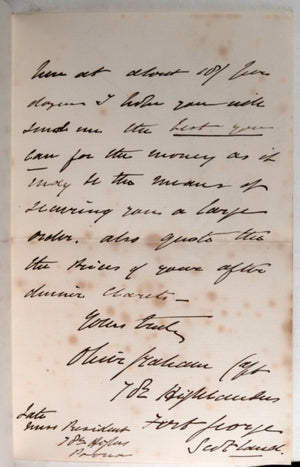 here at about 18/ per
dozen I hope you will
send me the best you
can for the money as it
may be the means of
securing you a large
order. also quote me
the prices of your after
dinner clarets —
Yours truly
Oliver Graham Capt
78th Highlanders
Fort George
Scotland
Late
Mess President
78th Highrs
Poona